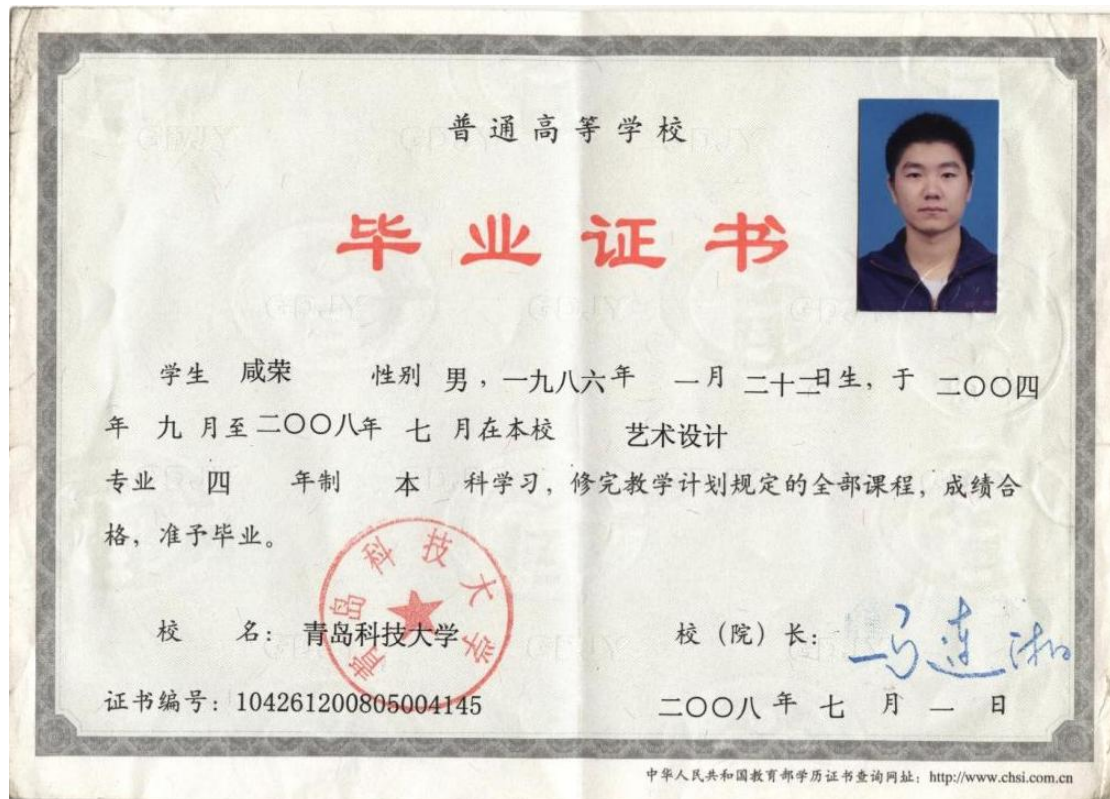 普通高等学校
毕业证书
学生 咸荣 性别 男，一九八六年 一月 二十二日生，于 二〇〇四
年 九 月至二〇〇八年 七 月在本校 艺术设计
专业 四 年制 本 科学习，修完教学计划规定的全部课程，成绩合
格，准予毕业。
青岛科技大学
校 名：青岛科技大学 校（院）长：马连湘
证书编号：104261200805004145 二〇〇八年 七 月 一 日
中华人民共和国教育部学历证书查询网址：http://www.chsi.com.cn